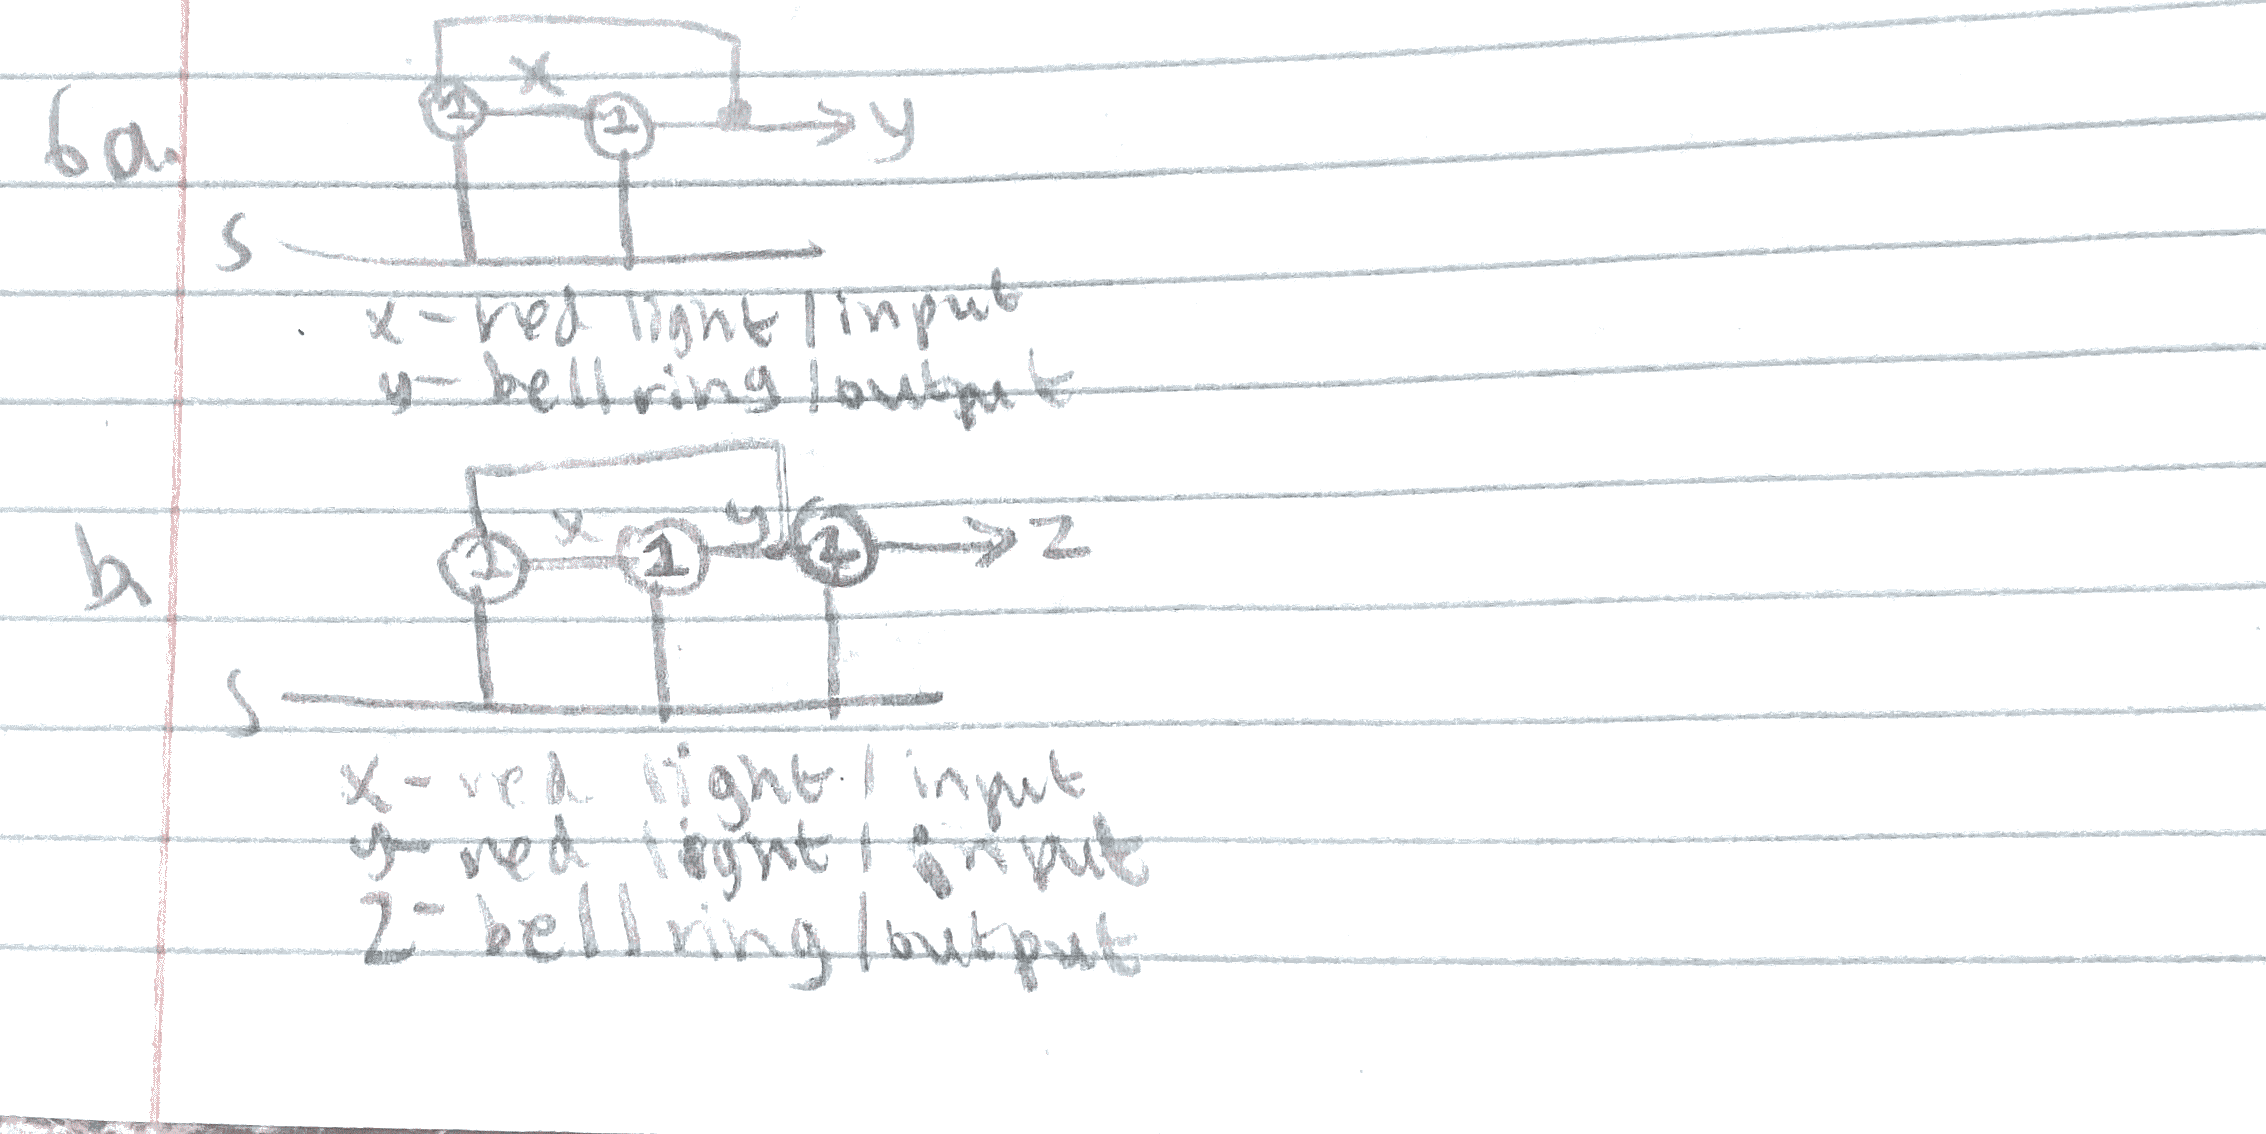 6a.
x
1 1 y
S
x - red light / input
y - bell ring / output
b.
x y
1 1 1 z
S
x - red light / input
y - red light / input
z - bell ring / output